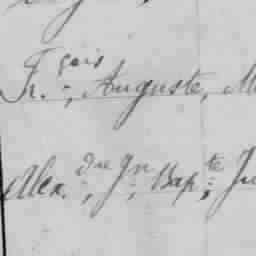 Fr.çois, Auguste, M
Alex.dre, Jn Bap.te, Ju